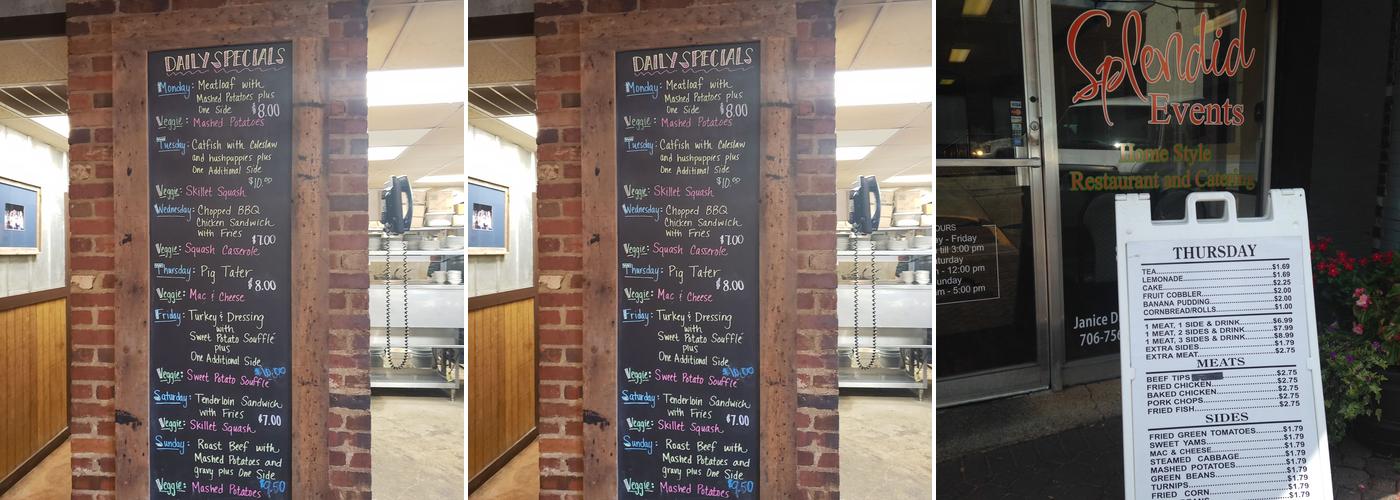 DAILY SPECIALS
Monday: Meatloaf with
Mashed Potatoes plus
One Side $8.00
Veggie: Mashed Potatoes
Tuesday: Catfish with Coleslaw
and hushpuppies plus
One Additional Side
$10.00
Veggie: Skillet Squash
Wednesday: Chopped BBQ
Chicken Sandwich
with Fries
$7.00
Veggie: Squash Casserole
Thursday: Pig Tater
$8.00
Veggie: Mac & Cheese
Friday: Turkey & Dressing
with
Sweet Potato Soufflé
plus
One Additional Side
$10.00
Veggie: Sweet Potato Soufflé
Saturday: Tenderloin Sandwich
with Fries $7.00
Veggie: Skillet Squash
Sunday: Roast Beef with
Mashed Potatoes and
gravy plus One Side
Veggie: Mashed Potatoes $9.50
DAILY SPECIALS
Monday: Meatloaf with
Mashed Potatoes plus
One Side $8.00
Veggie: Mashed Potatoes
Tuesday: Catfish with Coleslaw
and hushpuppies plus
One Additional Side
$10.00
Veggie: Skillet Squash
Wednesday: Chopped BBQ
Chicken Sandwich
with Fries
$7.00
Veggie: Squash Casserole
Thursday: Pig Tater
$8.00
Veggie: Mac & Cheese
Friday: Turkey & Dressing
with
Sweet Potato Soufflé
plus
One Additional Side
$10.00
Veggie: Sweet Potato Soufflé
Saturday: Tenderloin Sandwich
with Fries $7.00
Veggie: Skillet Squash
Sunday: Roast Beef with
Mashed Potatoes and
gravy plus One Side
Veggie: Mashed Potatoes $9.50
Splendid
Events
Home Style
Restaurant and Catering
OURS
y - Friday
till 3:00 pm
aturday
- 12:00 pm
unday
m - 5:00 pm
Janice D
706-756
THURSDAY
TEA $1.69
LEMONADE $1.69
CAKE $2.25
FRUIT COBBLER $2.00
BANANA PUDDING $2.00
CORNBREAD/ROLLS $1.00
1 MEAT, 1 SIDE & DRINK $6.99
1 MEAT, 2 SIDES & DRINK $7.99
1 MEAT, 3 SIDES & DRINK $8.99
EXTRA SIDES $1.79
EXTRA MEAT $2.75
MEATS
BEEF TIPS $2.75
FRIED CHICKEN $2.75
BAKED CHICKEN $2.75
PORK CHOPS $2.75
FRIED FISH $2.75
SIDES
FRIED GREEN TOMATOES $1.79
SWEET YAMS $1.79
MAC & CHEESE $1.79
STEAMED CABBAGE $1.79
MASHED POTATOES $1.79
GREEN BEANS $1.79
TURNIPS $1.79
FRIED CORN $1.79